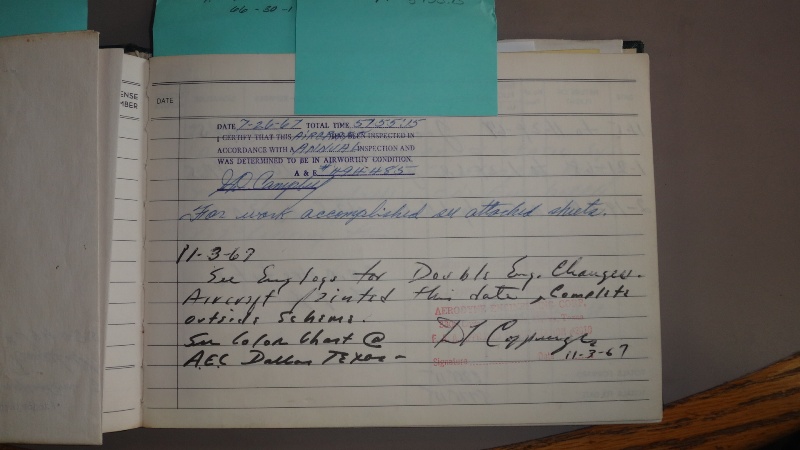 66-30-1
ENSE
MBER
DATE
DATE 7-26-67 TOTAL TIME 5955:15
I CERTIFY THAT THIS AIRCRAFT HAS BEEN INSPECTED IN
ACCORDANCE WITH A ANNUAL INSPECTION AND
WAS DETERMINED TO BE IN AIRWORTHY CONDITION.
A & P
For work accomplished see attached sheets.
11-3-67
See Eng logs for Double Eng. Changes.
Aircraft painted this date, Complete
outside scheme.
See Color Chart @
AEC Dallas Texas -
Signature
11-3-67